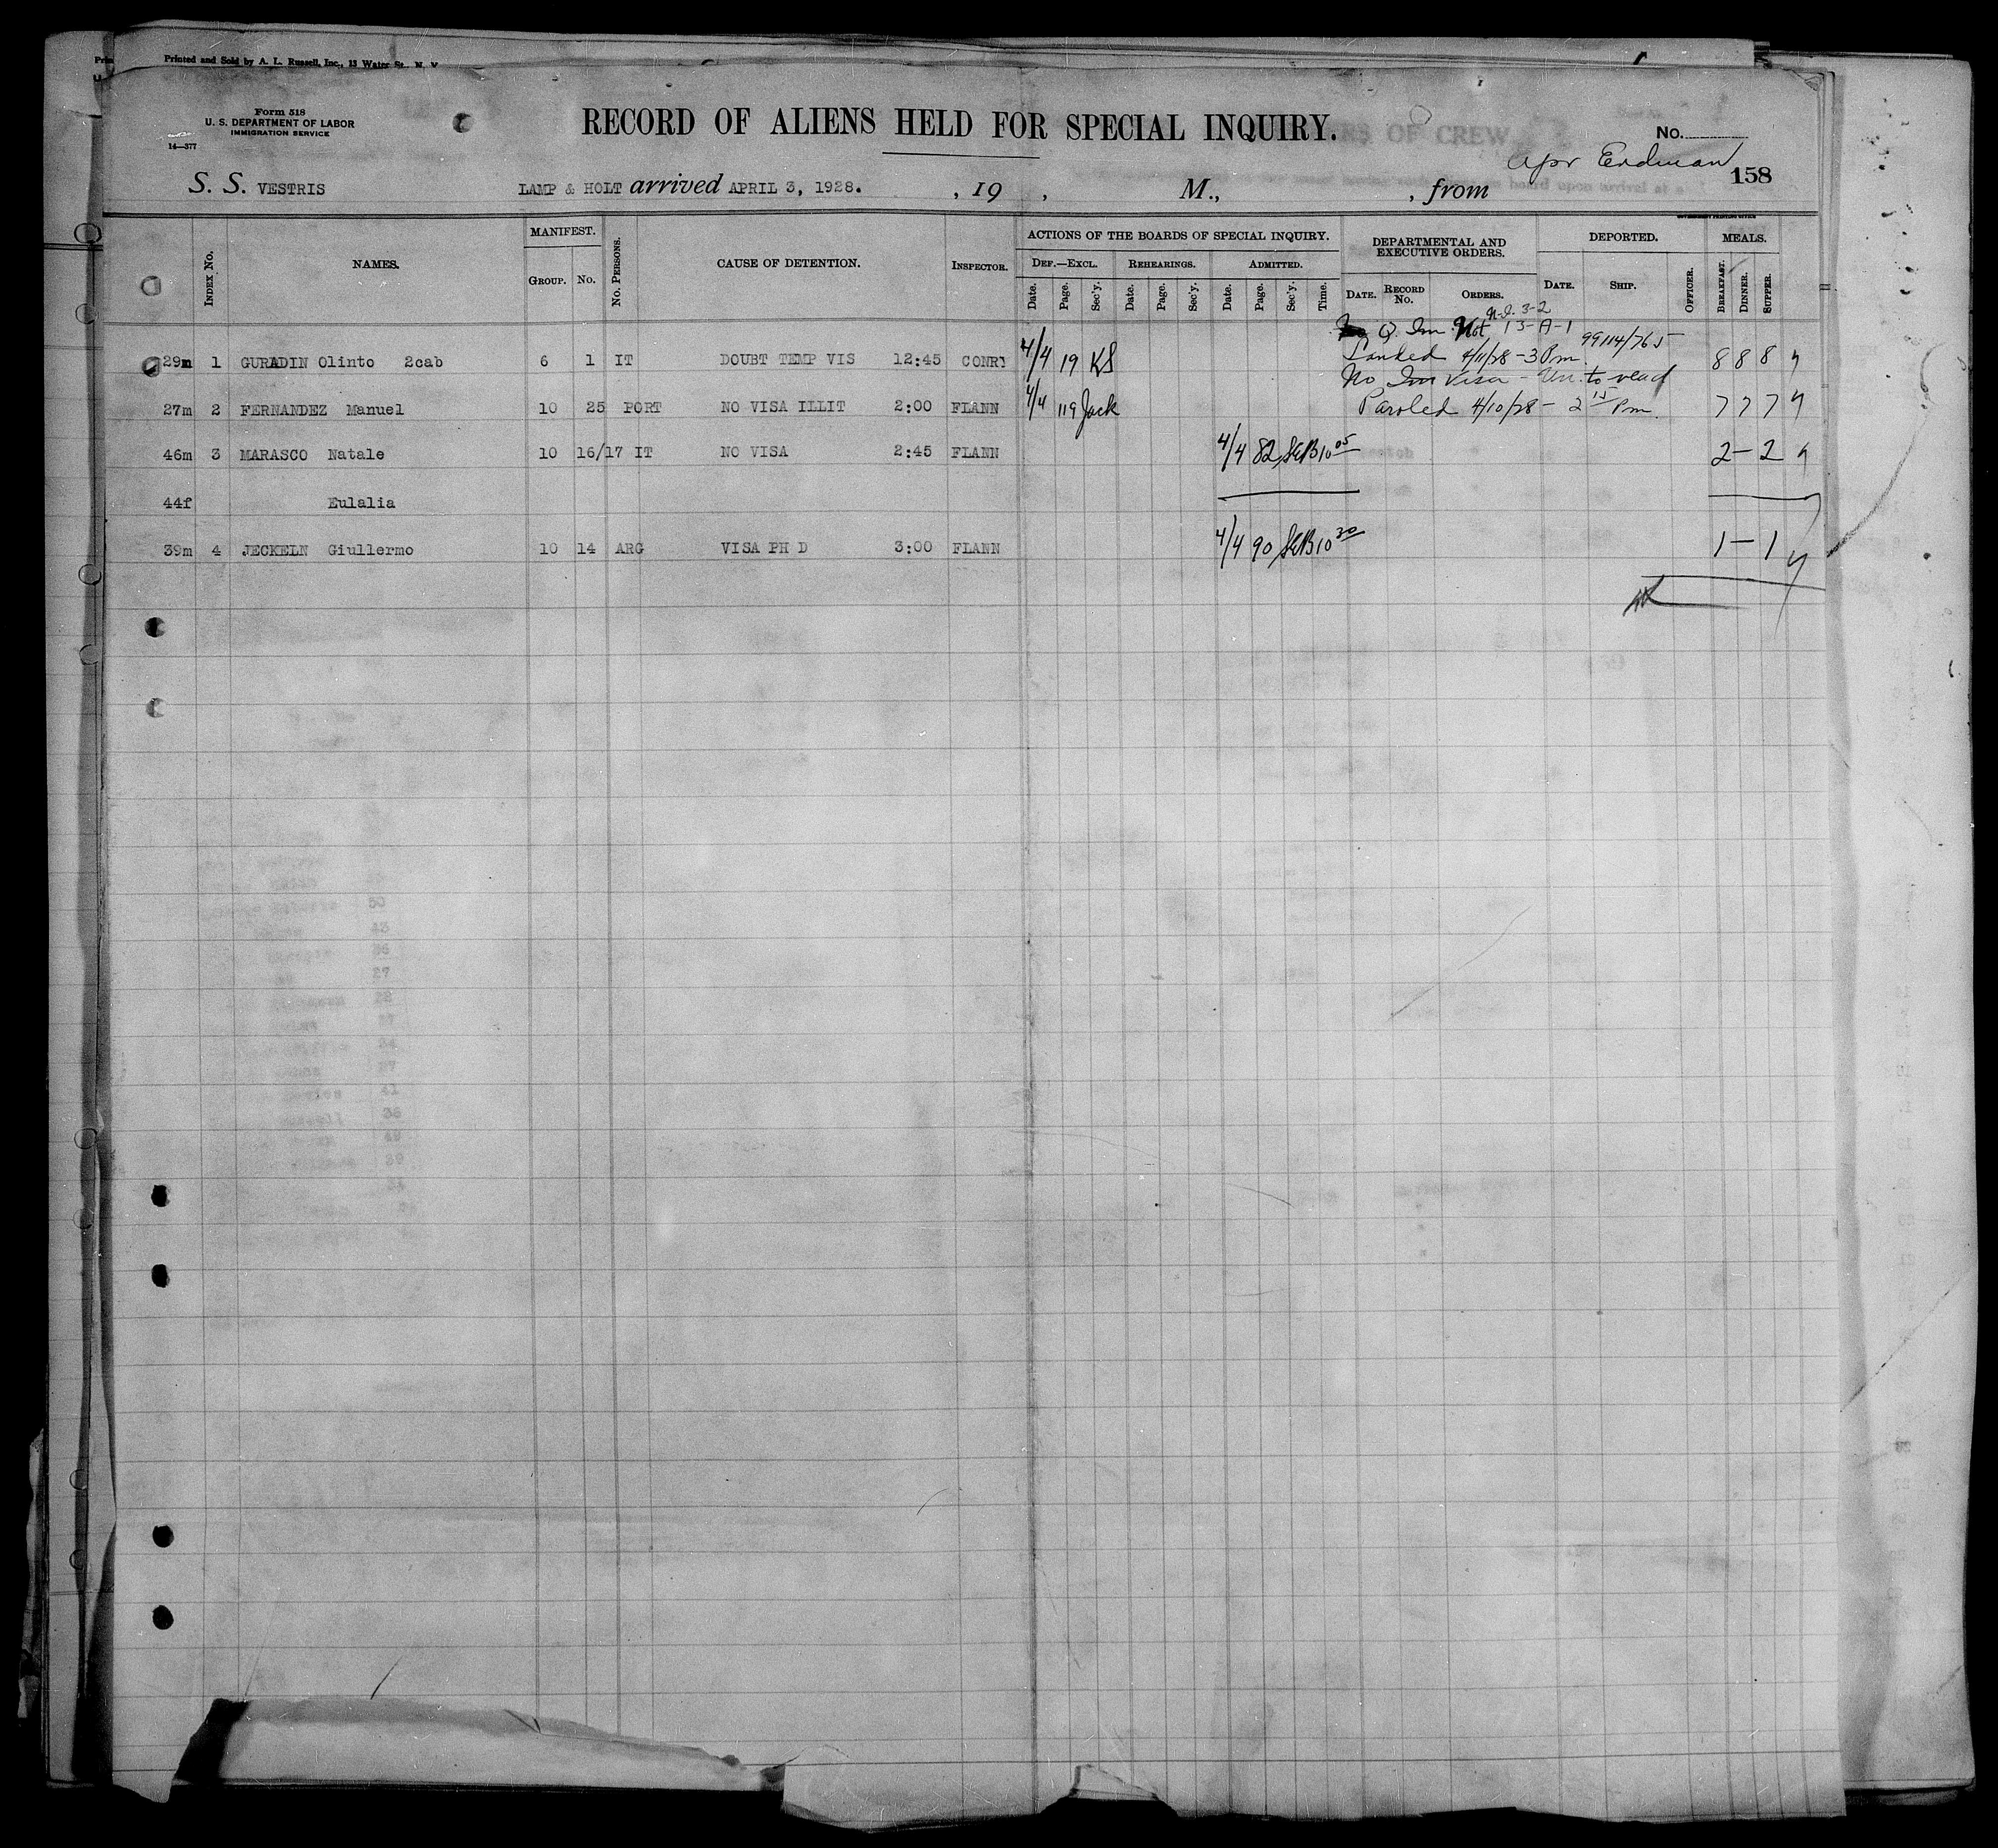 Printed and Sold by A. L. Russell, Inc., 13 Water St., N. Y.
Form 518
U. S. DEPARTMENT OF LABOR
IMMIGRATION SERVICE
14—377
RECORD OF ALIENS HELD FOR SPECIAL INQUIRY.
No.
Erdman
158
S. S. VESTRIS LAMP & HOLT arrived APRIL 3, 1928. , 19 , M., , from
GOVERNMENT PRINTING OFFICE
INDEX No. NAMES. MANIFEST. GROUP. No. No. PERSONS. CAUSE OF DETENTION. INSPECTOR.
ACTIONS OF THE BOARDS OF SPECIAL INQUIRY.
DEF.—EXCL. REHEARINGS. ADMITTED.
Date. Page. Sec'y. Date. Page. Sec'y. Date. Page. Sec'y. Time.
DEPARTMENTAL AND EXECUTIVE ORDERS.
DATE. RECORD No. ORDERS.
DEPORTED.
DATE. SHIP. OFFICER.
MEALS.
BREAKFAST. DINNER. SUPPER.
3-2
Q. Im. Not 13-A-1
99114/765
29m 1 GURADIN Olinto 2cab 6 1 IT DOUBT TEMP VIS 12:45 CONRY 4/4 19 KS Landed 4/11/28 - 3 Pm. 8 8 8
No Im Visa - Un. to read
27m 2 FERNANDEZ Manuel 10 25 PORT NO VISA ILLIT 2:00 FLANN 4/4 119 Jack Paroled 4/10/28 - 2 15 Pm. 7 7 7
46m 3 MARASCO Natale 10 16/17 IT NO VISA 2:45 FLANN 4/4 82 SEB 10 05 2 - 2
44f Eulalia
39m 4 JECKELN Giullermo 10 14 ARG VISA PH D 3:00 FLANN 4/4 90 SEB 10 30 1 - 1